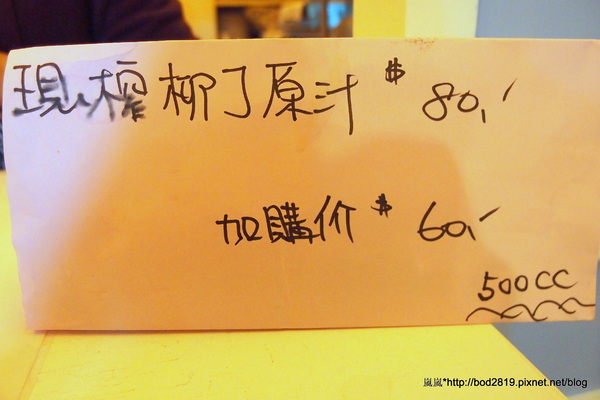 現榨柳丁原汁 $80.-
加購价 $60.-
500cc
嵐嵐*http://bod2819.pixnet.net/blog